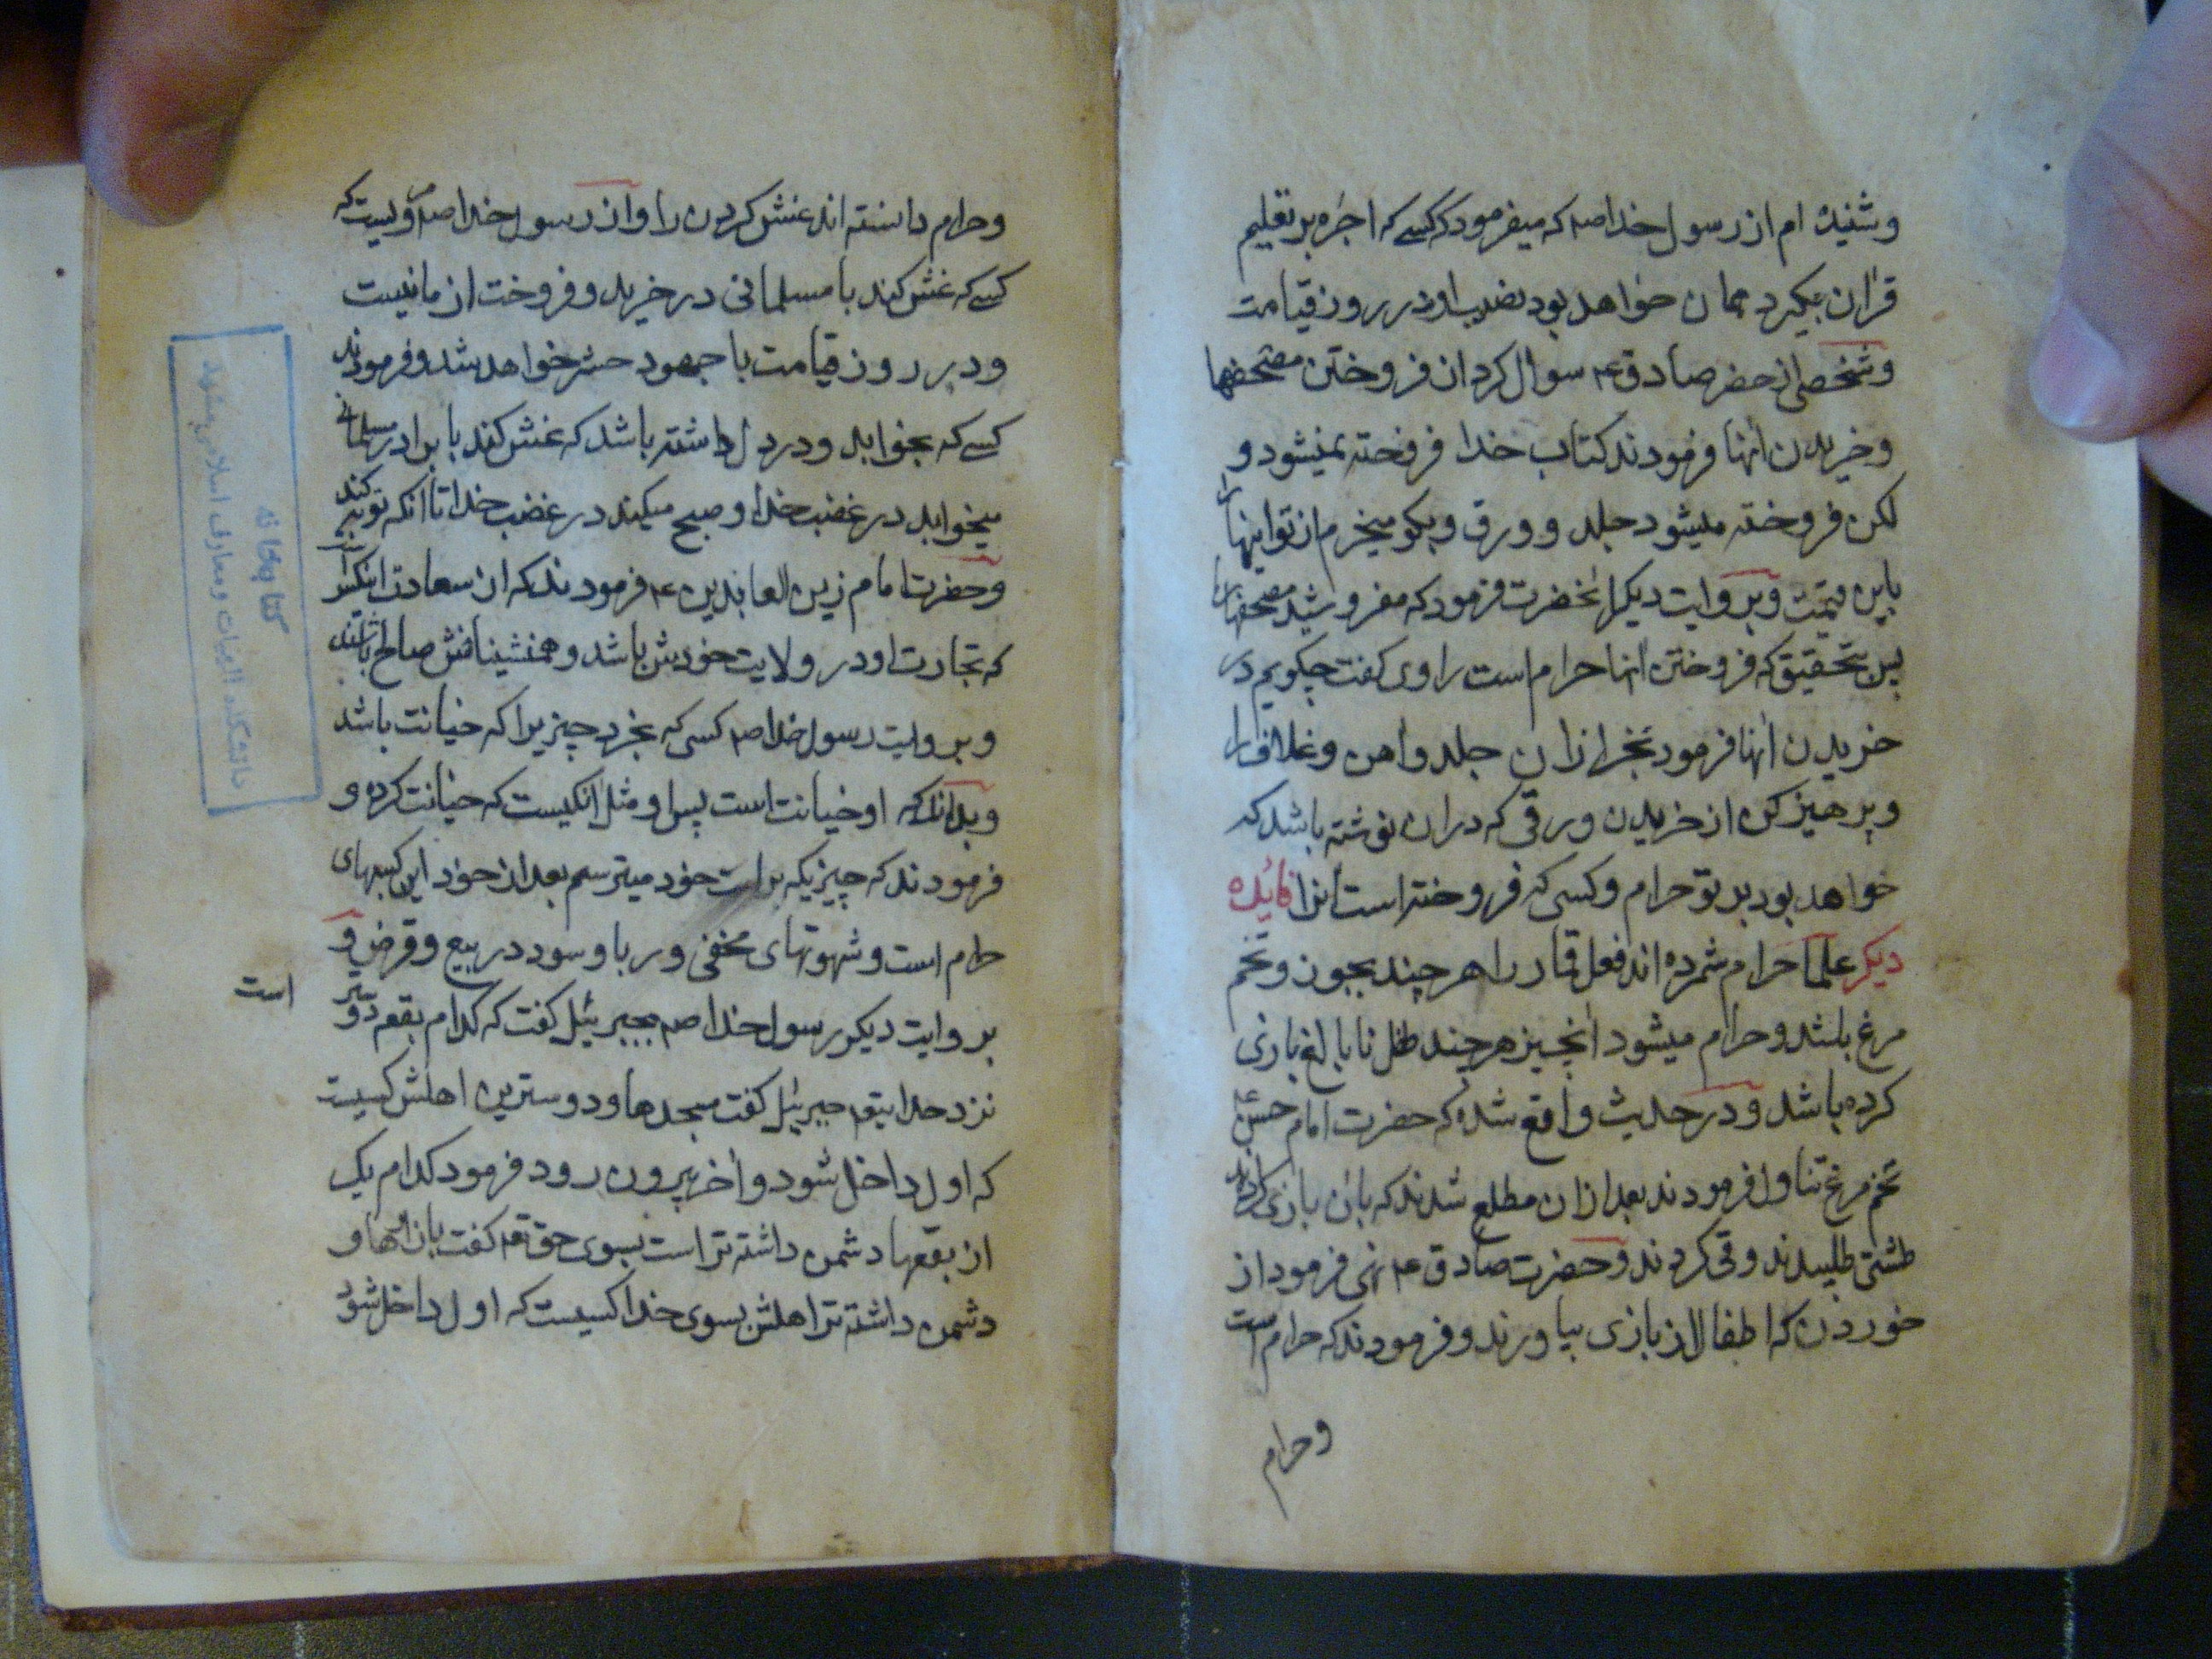 وشنیده ام از رسول خدا صم که میفرمود که کسے که اجره بر تعلیم
قرآن بگیرد همان خواهد بود نصیب او در روز قیامت
وشخصی از حضر صادق ع سوال کرد از فروختن مصحفها
وخریدن آنها فرمودند کتاب خدا فروخته نمیشود و
لکن فروخته میشود جلد و ورق وبکو میخرم از تو اینها را
باین قیمت وبروایت دیکر آنحضرت فرمود که مفروشید مصحفها را
پس بتحقیق که فروختن آنها حرام است راوی کفت چکویم در
خریدن آنها فرمود بخر ازان جلد وآهن وغلاف را
وپرهیز کن از خریدن ورقی که دران نوشته باشد که
خواهد بود بر تو حرام وکسی که فروخته است آنرا فایده
دیکر علما حرام شمرده اند فعل قمار را هر چند بجوز وتخم
مرغ باشد وحرام میشود آنچیز هر چند طفل نابالغ بازی
کرده باشد ودر حدیث واقع شده که حضرت امام حسن ع
تخم مرغ تناول فرمودند بعد ازان مطلع شدند که بان بازی کرده اند
طشتی طلبیدند وقی کردند وحضرت صادق ع نهی فرمود از
خوردن که اطفال از بازی بیاورند وفرمودند که حرام است
وحرام
وحرام دانسته اند غش کردن را واز رسول خدا صم مرویست که
کسے که غش کند با مسلمانی در خرید وفروخت از ما نیست
ودر روز قیامت با جهود حشر خواهد شد وفرمودند
کسے که بخوابد ودر دل داشته باشد که غش کند با برادر مسلمانے
میخوابد در غضب خدا وصبح میکند در غضب خدا تا آنکه توبه کند
وحضرت امام زین العابدین ع فرمودند که از سعادت
که تجارت او در ولایت خودش باشد وهمنشینانش صالح باشند
وبرویت رسول خدا صم کسی که بخرد چیزیرا که خیانت باشد
وبداند که او خیانت است پس او مثل آنکیست که خیانت کرده و
فرمودند که چیزیکه بر امت خود میترسم بعد از خود این کسبهای
حرام است وشهوتهای مخفی وربا وسود در بیع وقرض و
بروایت دیکر رسول خدا صم بجبرئیل کفت که کدام بقعه دوستر است
نزد خدایتعه جبرئیل کفت مسجدها ودوسترین اهلش کسیست
که اول داخل شود وآخر بیرون رود فرمود کدام یک
از بقعها دشمن داشته تر است بسوی حق تعه کفت بازارها و
دشمن داشته تر اهلش بسوی خدا کسیست که اول داخل شود
کتابخانه
دانشکده الهیات و معارف اسلامی مشهد